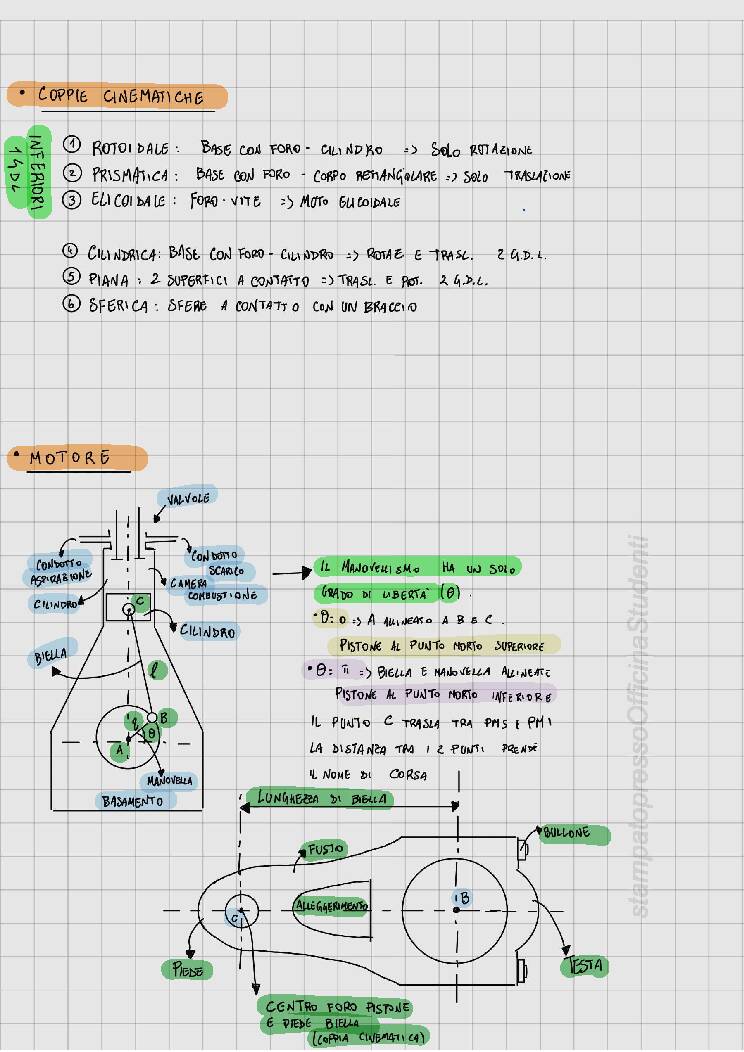 • COPPIE CINEMATICHE
INFERIORI
1 GDL
① ROTOIDALE: BASE CON FORO - CILINDRO => SOLO ROTAZIONE
② PRISMATICA: BASE CON FORO - CORPO RETTANGOLARE => SOLO TRASLAZIONE
③ ELICOIDALE: FORO-VITE => MOTO ELICOIDALE
④ CILINDRICA: BASE CON FORO - CILINDRO => ROTAZ E TRASL. 2 G.D.L.
⑤ PIANA: 2 SUPERFICI A CONTATTO => TRASL. E ROT. 2 G.D.L.
⑥ SFERICA: SFERE A CONTATTO CON UN BRACCIO
• MOTORE
VALVOLE
CONDOTTO
ASPIRAZIONE
CONDOTTO
SCARICO
CAMERA
COMBUSTIONE
CILINDRO
C
CILINDRO
BIELLA
l
B
θ
A
MANOVELLA
BASAMENTO
IL MANOVELLISMO HA UN SOLO
GRADO DI LIBERTA' (θ).
• θ: 0 => A ALLINEATO A B E C.
PISTONE AL PUNTO MORTO SUPERIORE
• θ: π => BIELLA E MANOVELLA ALLINEATE
PISTONE AL PUNTO MORTO INFERIORE
IL PUNTO C TRASLA TRA PMS E PMI
LA DISTANZA TRA I 2 PUNTI PRENDE
IL NOME DI CORSA
LUNGHEZZA DI BIELLA
BULLONE
FUSTO
ALLEGGERIMENTO
B
C
PIEDE
TESTA
CENTRO FORO PISTONE
E PIEDE BIELLA
(COPPIA CINEMATICA)
stampatopressoOfficinaStudenti